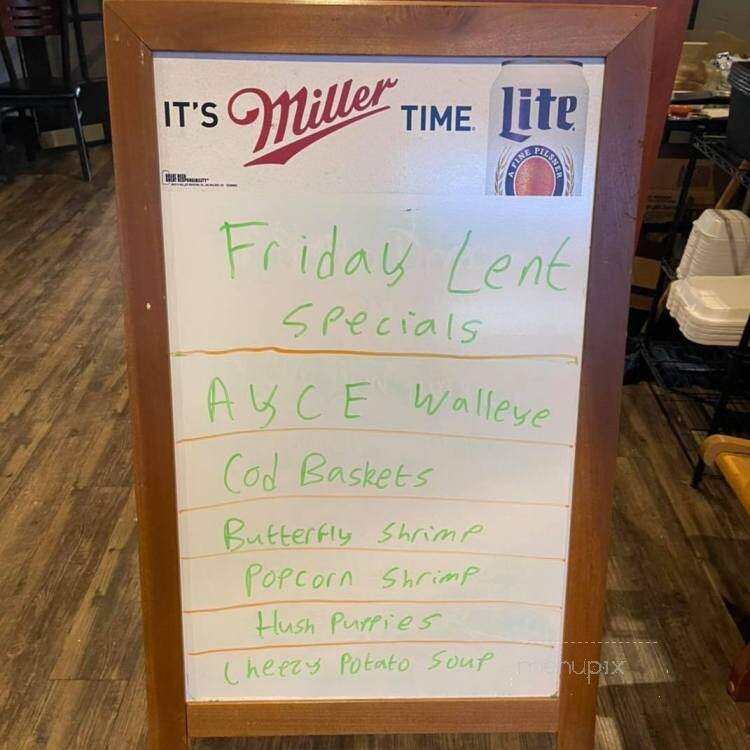 IT'S Miller TIME.
Lite
A FINE PILSNER
Friday Lent
Specials
AYCE Walleye
Cod Baskets
Butterfly Shrimp
Popcorn Shrimp
Hush Puppies
Cheezy Potato Soup
menupix